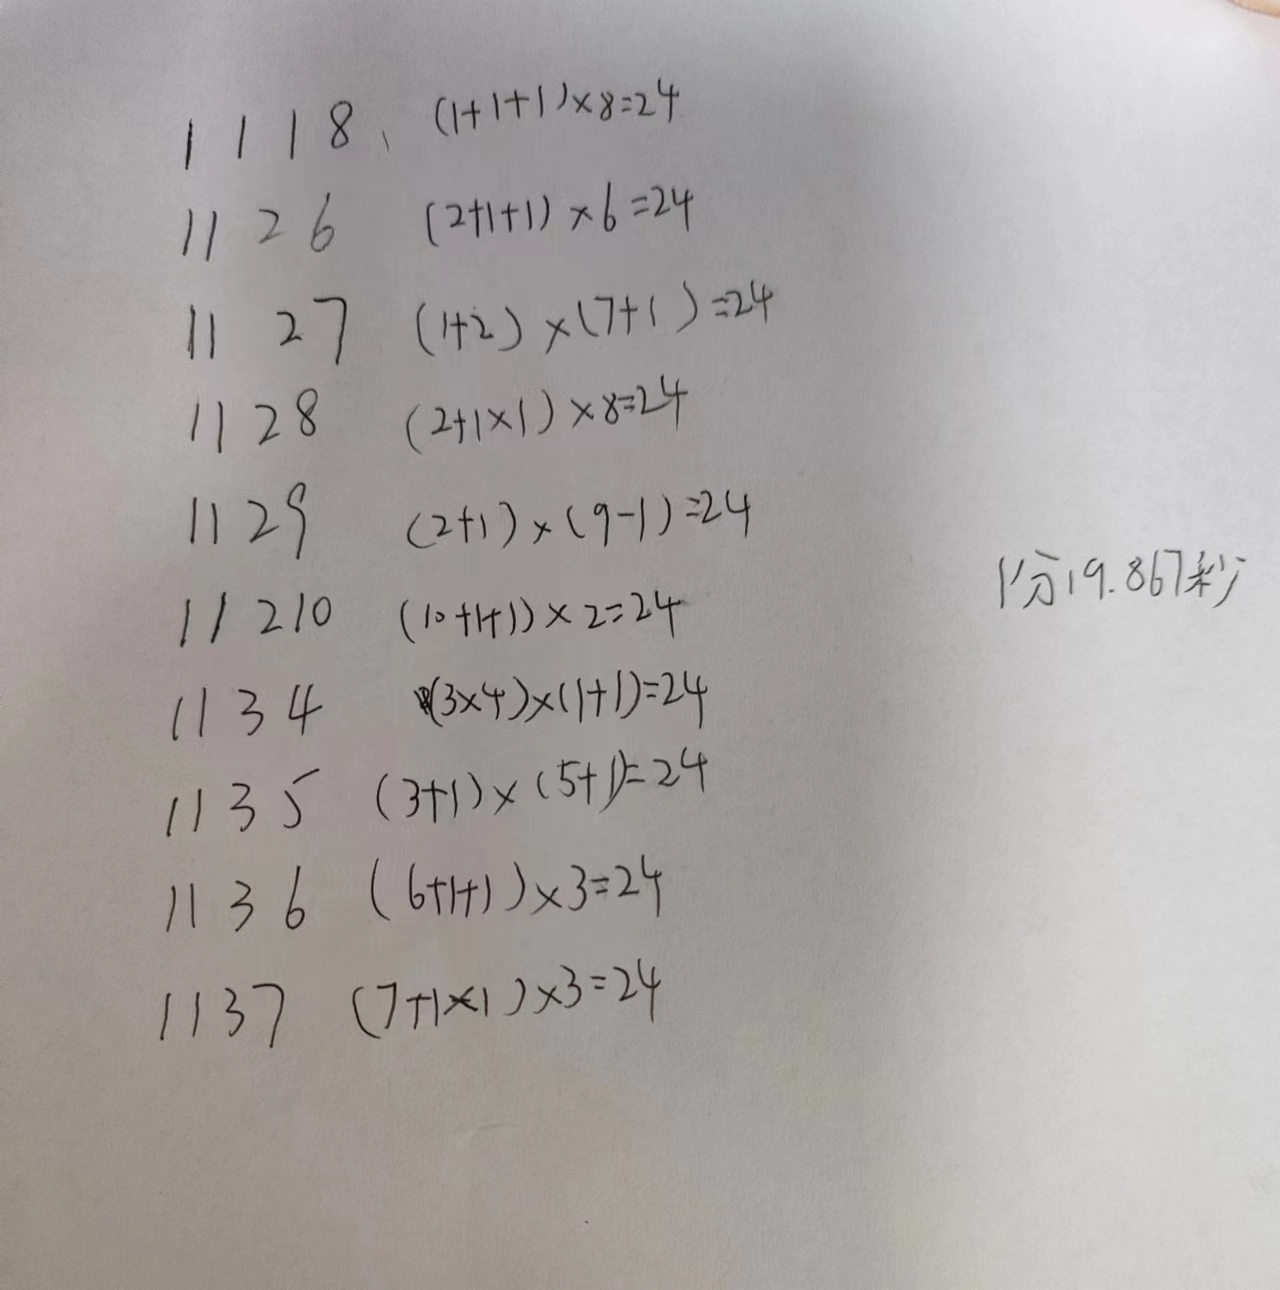 1 1 1 8、 (1+1+1)×8=24
11 2 6 (2+1+1)×6=24
11 2 7 (1+2)×(7+1)=24
11 2 8 (2+1×1)×8=24
11 2 9 (2+1)×(9-1)=24
11 2 10 (10+1+1)×2=24
1分19.867秒
11 3 4 (3×4)×(1+1)=24
11 3 5 (3+1)×(5+1)=24
11 3 6 (6+1+1)×3=24
1137 (7+1×1)×3=24